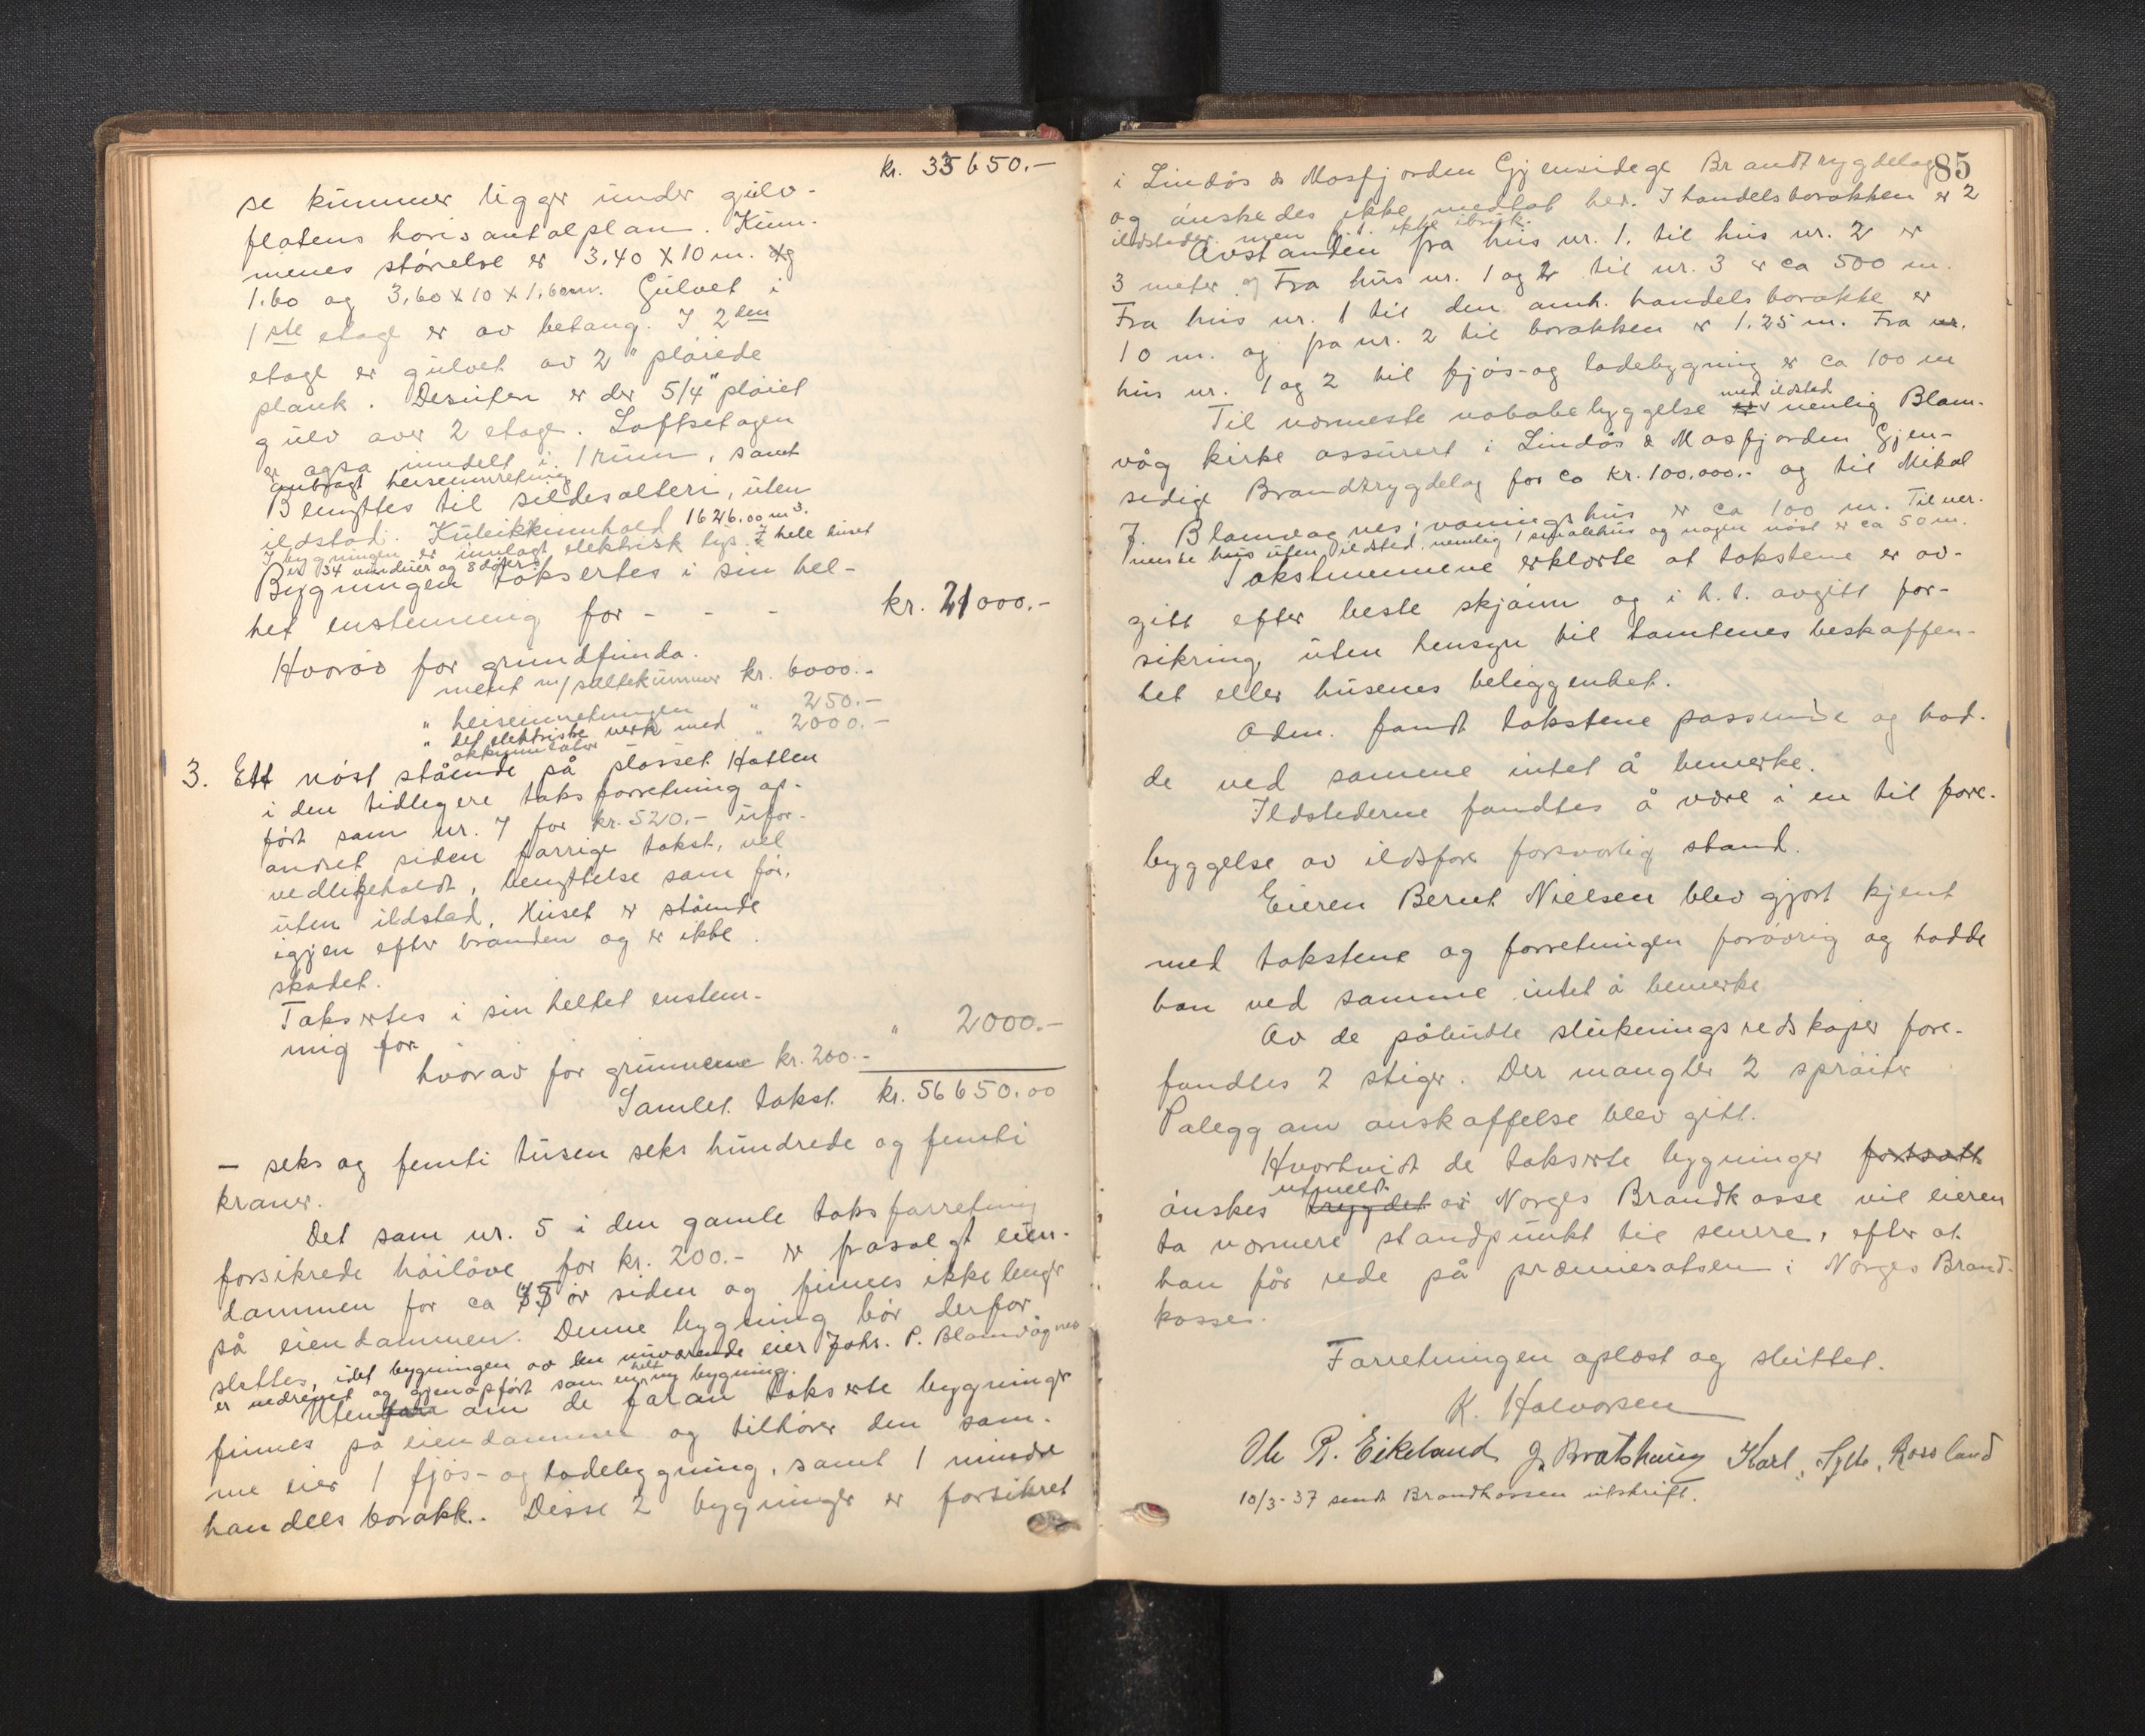 kr. 33650.-
se kummer ligger under gulv-
flatens horisantalplan. Kum-
menes størrelse er 3,40 X 10 m. og
1.60 og 3,60 X 10 X 1,60 m. Gulvet i
1ste etage er av betong. I 2den
etage er gulvet av 2" pløiede
plank. Desuten er der 5/4" pløiet
gulv over 2 etage. Loftsetagen
er også inndelt i 1 rum, samt
anbragt heiseinnretning
Benyttes til sildesalteri, uten
ildsted. Kubikkinnhold 1626.00 m3.
I bygningen er innlagt elektrisk lys. I hele huset
er 34 vinduer og 8 dører.
Bygningen taksertes i sin hel-
het enstemmig for - - - kr. 21000.-
Hvorav for grundfunda-
ment m/saltekummer kr. 6000.-
" heiseinnretningen " 250.-
" det elektriske verk med " 2000.-
akkumulator
3. Ett nøst stående på plasset Hatlen
i den tidlegere taksforretning op-
ført som nr. 7 for kr. 520.- ufor-
andret siden forrige takst, vel
vedlikeholdt, benyttelse som før,
uten ildsted. Huset er stående
igjen efter branden og er ikke
skadet.
Taksertes i sin helhet enstem-
mig for " 2000.-
hvorav for grunnmur kr. 200.-
Samlet takst kr. 56650.00
- seks og femti tusen seks hundrede og femti
kroner.
Det som nr. 5 i den gamle taksforretning
forsikrede høiløve for kr. 200.- er frasolgt eien-
dommen for ca 45 år siden og finnes ikke lenger
på eiendommen. Denne bygning bør derfor
slettes, idet bygningen av den nuværende eier Johs. P. Blomvågnes
er nedrevet og gjenopført som en helt ny bygning.
Uten om de foran takserte bygninger
finnes på eiendommen og tilhører den sam-
me eier 1 fjøs- og ladebygning, samt 1 mindre
handelsbarakk. Disse 2 bygninger er forsikret
85
i Lindås & Masfjorden Gjensidige Brandtrygdelag
og ønskedes ikke medtat her. I handelsbarakken er 2
ildsteder men p.t. ikke i bruk.
Avstanden fra hus nr. 1. til hus nr. 2 er
3 meter og Fra hus nr. 1 og 2 til nr. 3 er ca 500 m.
Fra hus nr. 1 til den anh. handelsbarakke er
10 m. og fra nr. 2 til barakken er 1.25 m. Fra nr.
hus nr. 1 og 2 til fjøs- og ladebygning er ca 100 m
Til nærmeste nabobebyggelse med ildsted nemlig Blom-
våg kirke assurert i Lindås & Masfjorden Gjen-
sidige Brandtrygdelag for ca kr. 100,000.- og til Mikal
J. Blomvågnes' våningshus er ca 100 m. Til nær-
meste hus uten ildsted, nemlig 1 smalehus og nogen nøst er ca 50 m.
Takstmennene erklærte at takstene er av-
gitt efter beste skjønn og i h. t. avgitt for-
sikring, uten hensyn til tomtenes beskaffen-
het eller husenes beliggenhet.
Adm. fandt takstene passende og had-
de ved samme intet å bemerke.
Ildstederne fandtes å være i en til fore-
byggelse av ildsfare forsvarlig stand.
Eieren Bernt Nielsen blev gjort kjent
med takstene og forretningen forøvrig og hadde
han ved samme intet å bemerke
Av de påbudte slukningsredskaper fore-
fandtes 2 stiger. Der mangler 2 sprøiter
Palegg om anskaffelse blev gitt.
Hvorhvidt de takserte bygninger fortsatt
ønskes trygdet utmeldt av Norges Brandkasse vil eieren
ta nærmere standpunkt til senere, efter at
han får rede på præmiesatsen i Norges Brand-
kasse.
Forretningen opløst og sluttet.
K. Halvorsen
Ole R. Eikeland J. Bratshaug Karl, Sylte, Rossland
10/3-37 sendt Brandkassen utskrift.